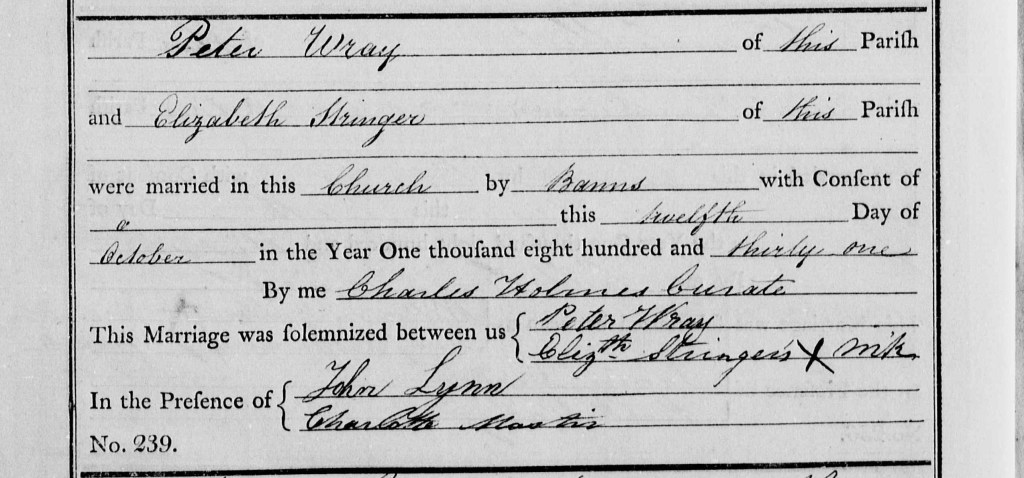 Peter Wray of this Pariſh
and Elizabeth Stringer of this Pariſh
were married in this Church by Banns with Conſent of
o this twelfth Day of
October in the Year One thouſand eight hundred and thirty one
By me Charles Holmes Curate
This Marriage was ſolemnized between us { Peter Wray
Elizth Stringer's X mk
In the Preſence of { John Lynn
Charlotte
No. 239.